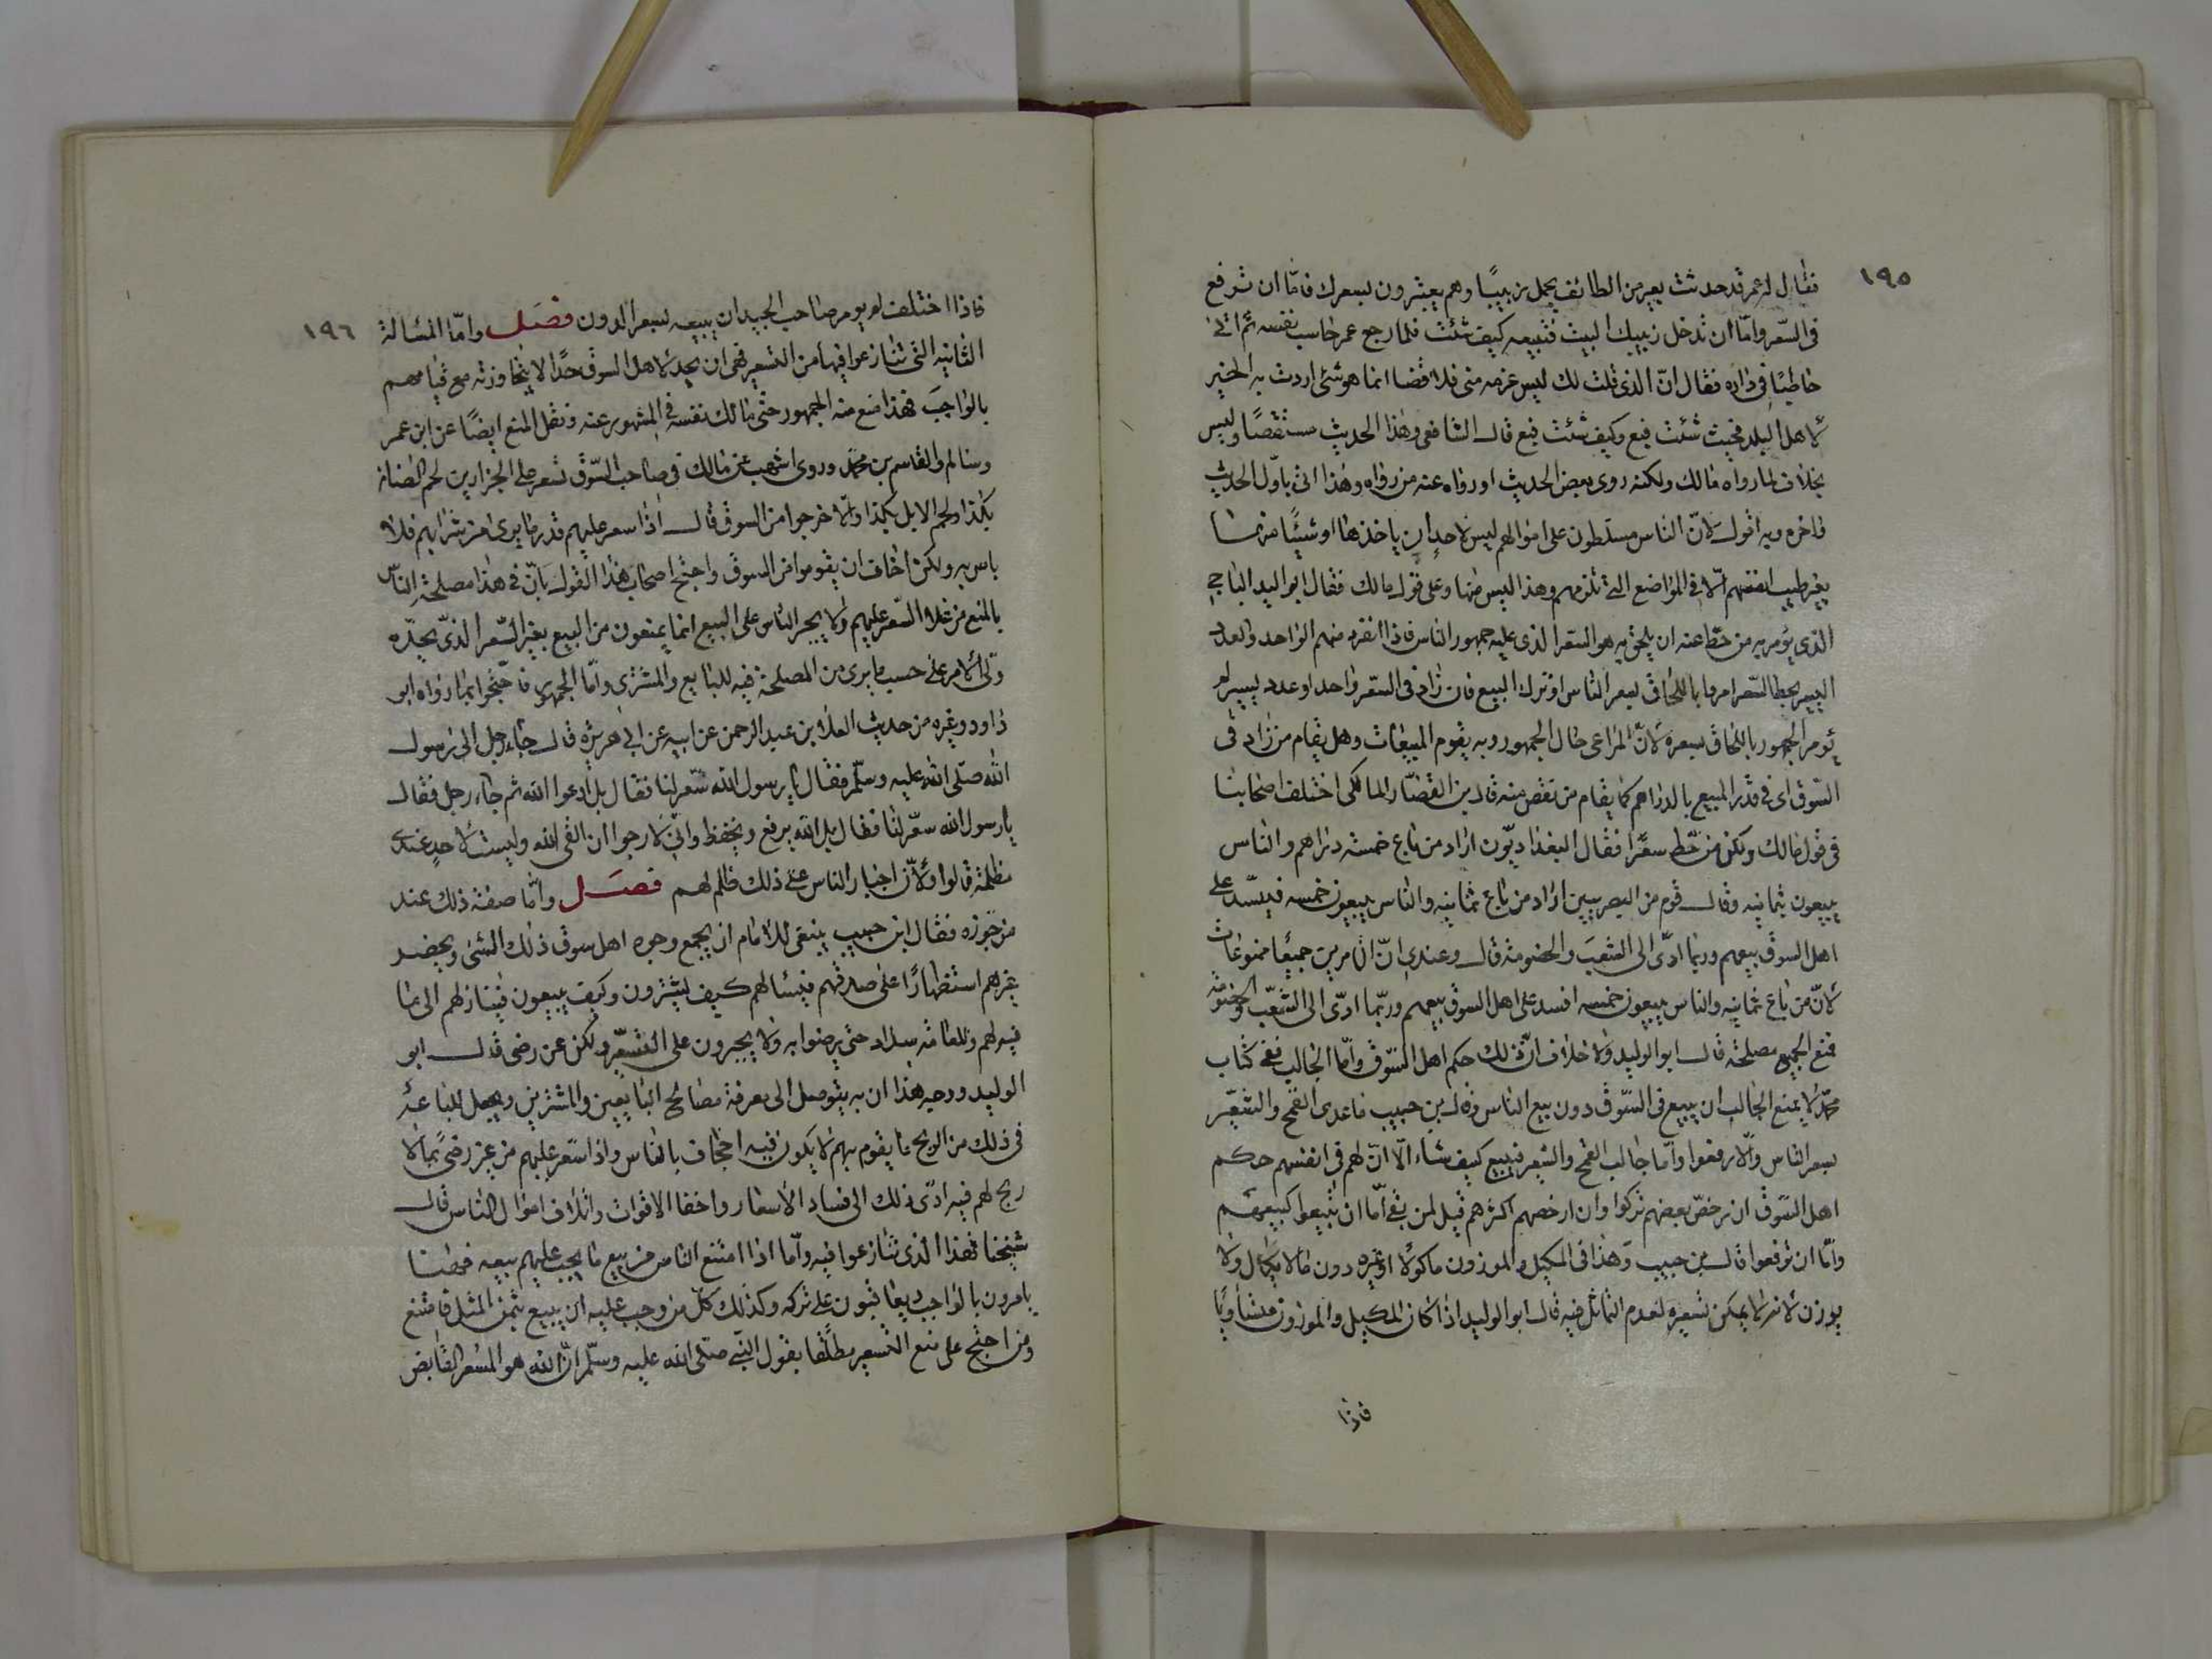 ١٩٥
فقال له عمر قد حدثت بعير من الطائف يحمل زبيبًا وهم يعتبرون بسعرك فامّا ان ترفع
فى السّعر وامّا ان تدخل زبيبك البيت فتبيعه كيف شئت فلما رجع عمر حاسب نفسه ثم اتى
حاطبًا فى داره فقال انّ الذى قلت لك ليس عزمه منى فلا قضا انما هو شئ اردت به الخير
لأهل البلد فحيث شئت فبع وكيف شئت فبع قال الشافعى وهذا الحديث مستقصًا وليس
بخلاف لما رواه مالك ولكنه روى بعض الحديث او رواه عنه من رواه وهذا اتى باوّل الحديث
واخره وبه اقول لانّ الناس مسلطون على اموالهم ليس لاحد ان ياخذها او شيئًا منها
بغير طيب انفسهم الّا فى المواضع التى تلزمهم وهذا ليس منها وعلى قول مالك فقال ابو اليد الباجى
الذى يؤمر به من حط عنه ان يلحق به هو السّعر الذى عليه جمهور الناس فاذا انفرد منهم الواحد والعدد
اليسير بحط السّعر امروا باللحاق بسعر الناس او ترك البيع فان زاد فى السّعر واحد او عدد يسير لم
يؤمر الجمهور باللحاق بسعره لانّ المراعى حال الجمهور وبه يقوم المبيعات وهل يقام من زاد فى
السّوق اى فى قدر المبيع بالدراهم كما يقام من نقص منه قال بن القصّار المالكى اختلف اصحابنا
فى قول مالك ولكن من حّط سعرًا فقال البغداديّون اراد من باع خمسة دراهم والناس
يبيعون ثمانيه وقال قوم من البصريين اراد من باع ثمانيه والناس يبيعون خمسه فيفسّد على
اهل السوق بيعهم وربما ادّى الى الشغب والخصومة قال وعندى انّ الامرين جميعًا ممنوعات
لأنّ من باع ثمانيه والناس يبيعون خمسه افسد على اهل السوق بيعهم وربّما ادّى الى الشغّب والخصومة
فمنع الجميع مصلحة قال ابو الوليد ولا خلاف انّ ذلك حكم اهل السّوق وامّا الجالب ففى كتاب
محمّد لا يمنع الجالب ان يبيع فى السّوق دون بيع الناس وقال بن حبيب ماعدى القمح والشعّير
بسعر الناس والّا رفعوا وامّا جالب القمح والشعير فيبيع كيف شاء الّا انّ لهم فى انفسهم حكم
اهل السّوق ان رخصّ بعضهم تركوا وان ارخصهم اكثرهم قيل لمن بقى امّا ان تبيعوا كبيعهم
وامّا ان ترفعوا قال بن حبيب وهذا فى المكيل والموزون ماكولًا او غيره دون مالا يكال ولا
يوزن لأنه لا يمكن تسعيره لعدم التماثل فيه قال ابو الوليد اذا كان المكيل والموزون متساويًا
فاذا
١٩٦
فاذا اختلف لم يومر صاحب الجيد ان يبيعه بسعر الدون فصل وامّا المسالة
الثانيه التى تنازعوا فيها من التسعير فهى ان يحد لاهل السوق حدًا لا يتجاوزنه مع قيامهم
بالواجب فهذا منع منه الجمهور حتى مالك نفسه فى المشهور عنه ونقل المنع ايضًا عن ابن عمر
وسالم والقاسم بن محمّد وروى اشهب عن مالك فى صاحب السّوق تسعر على الجزارين لحم الضان
بكذا ولحم الابل بكذا والّا خرجوا من السوق قال اذا سعر عليهم قدر ما يرى من شرايهم فلا
باس به ولكن اخاف ان يقوموا من السوق واحتج اصحاب هذا القول بانّ فى هذا مصلحة الناس
بالمنع من غلاء السّعر عليهم ولا يجبر الناس على البيع انما يمنعون من البيع بغير السّعر الذى يحدّه
ولىّ الأمر على حسب ما يرى من المصلحة فيه للبايع والمشترى وامّا الجمهور فاحّتجوا بما رواه ابو
داود وغيره من حديث العلاء بن عبد الرحمن عن ابيه عن ابى هريره قال جاء رجل الى رسول
الله صلّى الله عليه وسلّم فقال يا رسول الله سّعر لنا فقال بل ادعوا الله ثم جاء رجل فقال
يا رسول الله سعّر لنا فقال بل الله يرفع ويخفظ وانّى لارجوا ان القى الله وليست لاحدٍ عندى
مظلمة قالوا ولأنّ اجبار الناس على ذلك ظلم لهم فصل وامّا صفة ذلك عند
من جوّزه فقال ابن حبيب ينبغى للامام ان يجمع وجوه اهل سوق ذلك الشئ ويحضر
غيرهم استظهارًا على صدقهم فيسالهم كيف يشترون وكيف يبيعون فينازلهم الى ما
فيه لهم وللعامّة سداد حتى يرضوا به ولا يجبرون على التسعّير ولكن عن رضى قال ابو
الوليد ووجه هذا ان به يتوصل الى معرفة مصالح البايعين والمشترين ويجعل للباعة
فى ذلك من الربح ما يقوم بهم لا يكون فيه اجحاف بالناس واذا سّعر عليهم من غير رضى بما لا
ربح لهم فيه ادّى ذلك الى فساد الأسعار واخفا الاقوات واتلاف اموال الناس قال
شيخنا فهذا الذى تنازعوا فيه وامّا اذا امتنع الناس من بيع ما يجب عليهم بيعه فهنا
يامرون بالواجب ويعاقبون على تركه وكذلك كلّ من وجب عليه ان يبيع بثمن المثل فامتنع
ومن احتج على منع التسعير مطلقًا بقول النبّى صلّى الله عليه وسلّم انّ الله هو المسّعر القابض